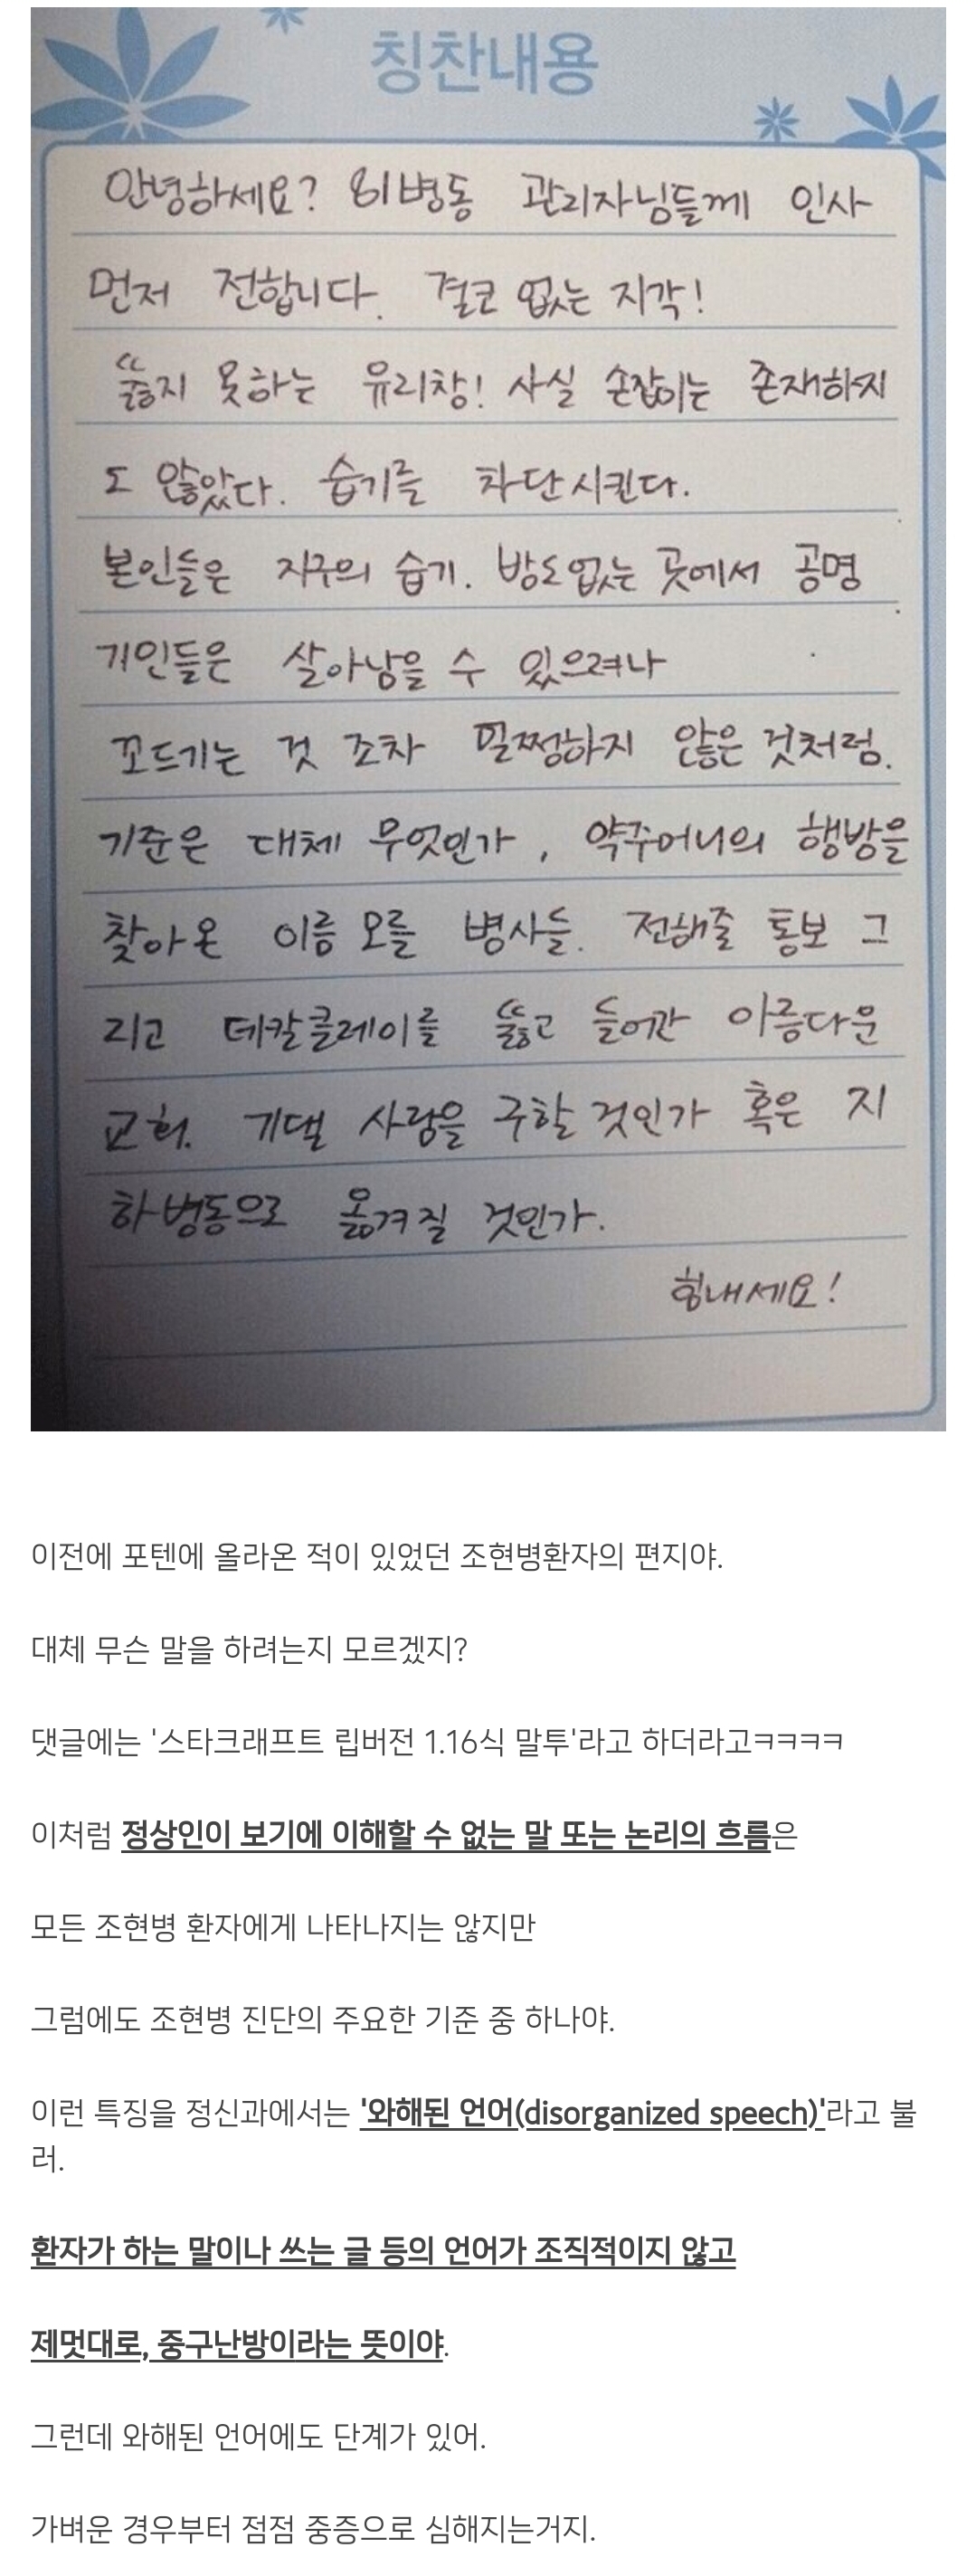 칭찬내용
안녕하세요? 81병동 관리자님들께 인사
먼저 전합니다. 결코 없는 지각!
뚫지 못하는 유리창! 사실 손잡이는 존재하지
도 않았다. 습기를 차단시킨다.
본인들은 지구의 습기. 방도없는 곳에서 공명
기인들은 살아남을 수 있으려나
꼬드기는 것 조차 멀쩡하지 않은 것처럼.
기준은 대체 무엇인가, 약주머니의 행방을
찾아온 이름 모를 병사들. 전해줄 통보 그
리고 데칼클레이를 뚫고 들어간 아름다운
교회. 기댈 사람을 구할 것인가 혹은 지
하병동으로 옮겨질 것인가.
힘내세요!
이전에 포텐에 올라온 적이 있었던 조현병환자의 편지야.
대체 무슨 말을 하려는지 모르겠지?
댓글에는 '스타크래프트 립버전 1.16식 말투'라고 하더라고ㅋㅋㅋㅋ
이처럼 정상인이 보기에 이해할 수 없는 말 또는 논리의 흐름은
모든 조현병 환자에게 나타나지는 않지만
그럼에도 조현병 진단의 주요한 기준 중 하나야.
이런 특징을 정신과에서는 '와해된 언어(disorganized speech)'라고 불
러.
환자가 하는 말이나 쓰는 글 등의 언어가 조직적이지 않고
제멋대로, 중구난방이라는 뜻이야.
그런데 와해된 언어에도 단계가 있어.
가벼운 경우부터 점점 중증으로 심해지는거지.